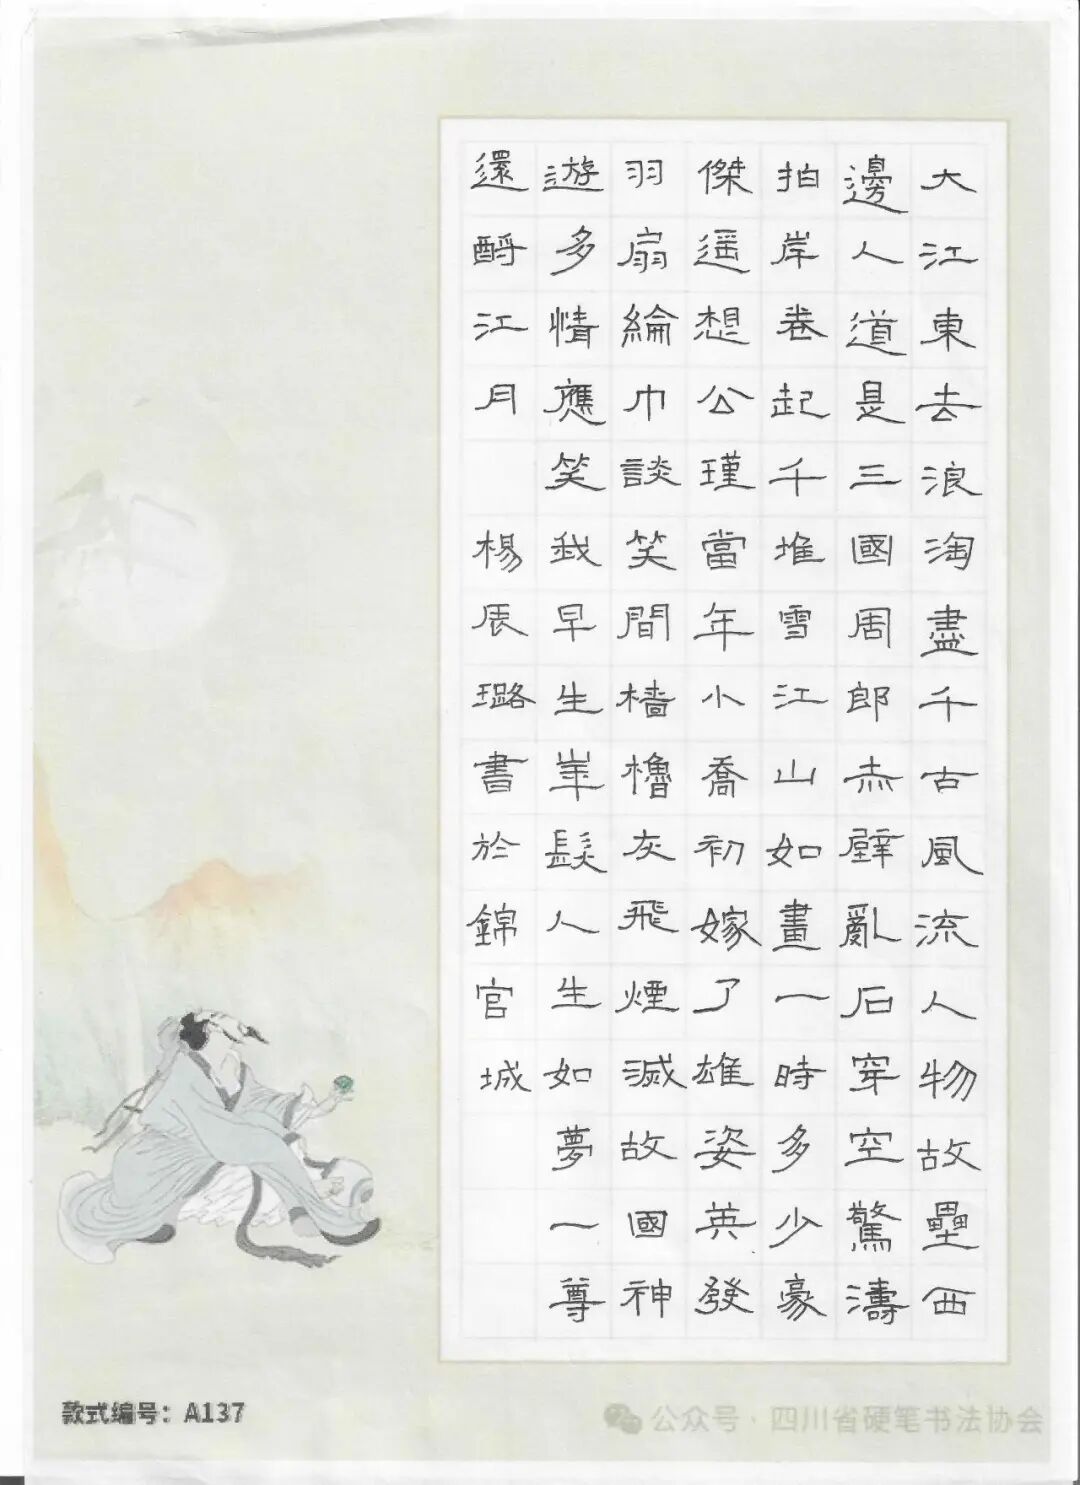 大江東去浪淘盡千古風流人物故壘西
邊人道是三國周郎赤壁亂石穿空驚濤
拍岸卷起千堆雪江山如畫一時多少豪
傑遥想公瑾當年小喬初嫁了雄姿英發
羽扇綸巾談笑間檣櫓灰飛煙滅故國神
遊多情應笑我早生華髮人生如夢一尊
還酹江月 楊辰璐書於錦官城
款式编号：A137
公众号·四川省硬笔书法协会